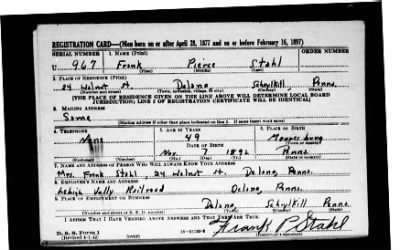 REGISTRATION CARD—(Men born on or after April 28, 1877 and on or before February 16, 1897)
SERIAL NUMBER 1. NAME (Print) ORDER NUMBER
U 967 Frank Pierce Stahl
(First) (Middle) (Last)
2. PLACE OF RESIDENCE (Print)
24 Walnut St. Delano Schuylkill Penna.
(Number and street) (Town, township, village, or city) (County) (State)
[THE PLACE OF RESIDENCE GIVEN ON THE LINE ABOVE WILL DETERMINE LOCAL BOARD
JURISDICTION; LINE 2 OF REGISTRATION CERTIFICATE WILL BE IDENTICAL]
3. MAILING ADDRESS
Same
[Mailing address if other than place indicated on line 2. If same insert word same]
4. TELEPHONE 5. AGE IN YEARS 6. PLACE OF BIRTH
None 49
DATE OF BIRTH
Nov. 7 1892 Penna.
7. NAME AND ADDRESS OF PERSON WHO WILL ALWAYS KNOW YOUR ADDRESS
Mrs. Frank Stahl, 24 Walnut St. Delano, Penna.
8. EMPLOYER'S NAME AND ADDRESS
Lehigh Vally Railroad Delano, Penna.
9. PLACE OF EMPLOYMENT OR BUSINESS
Delano Schylkill Penna.
(Number and street or R. F. D. number) (Town) (County) (State)
I AFFIRM THAT I HAVE VERIFIED ABOVE ANSWERS AND THAT THEY ARE TRUE.
D. S. S. Form 1
(Revised 4-1-42) Frank P. Stahl